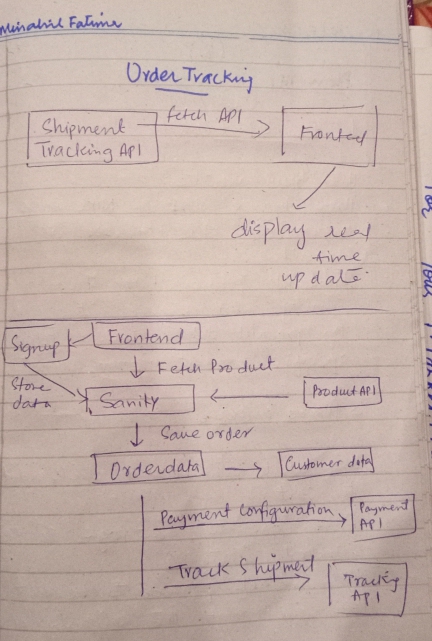 Minahil Fatima
Order Tracking
fetch API
Shipment
Tracking API
Frontend
display real
time
update.
Signup
Frontend
Fetch Product
Store
data
Sanity
Product API
Save order
Orderdata
Customer data
Payment Configuration
Payment
API
Track Shipment
Tracking
API